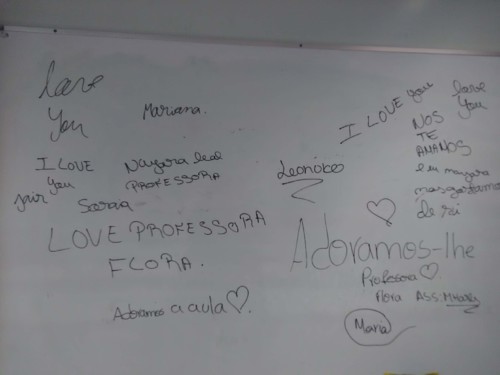 love
You
Mariana.
I LOVE
You
Nayara leal
PROFESSORA
jair
Saraa
LOVE PROFESSORA
FLORA.
Adoramos a aula
I LOVE you
love
You
NOS
TE
AMAMOS
de ri
Adoramos-lhe
Professora
Flora ASS:
Maria